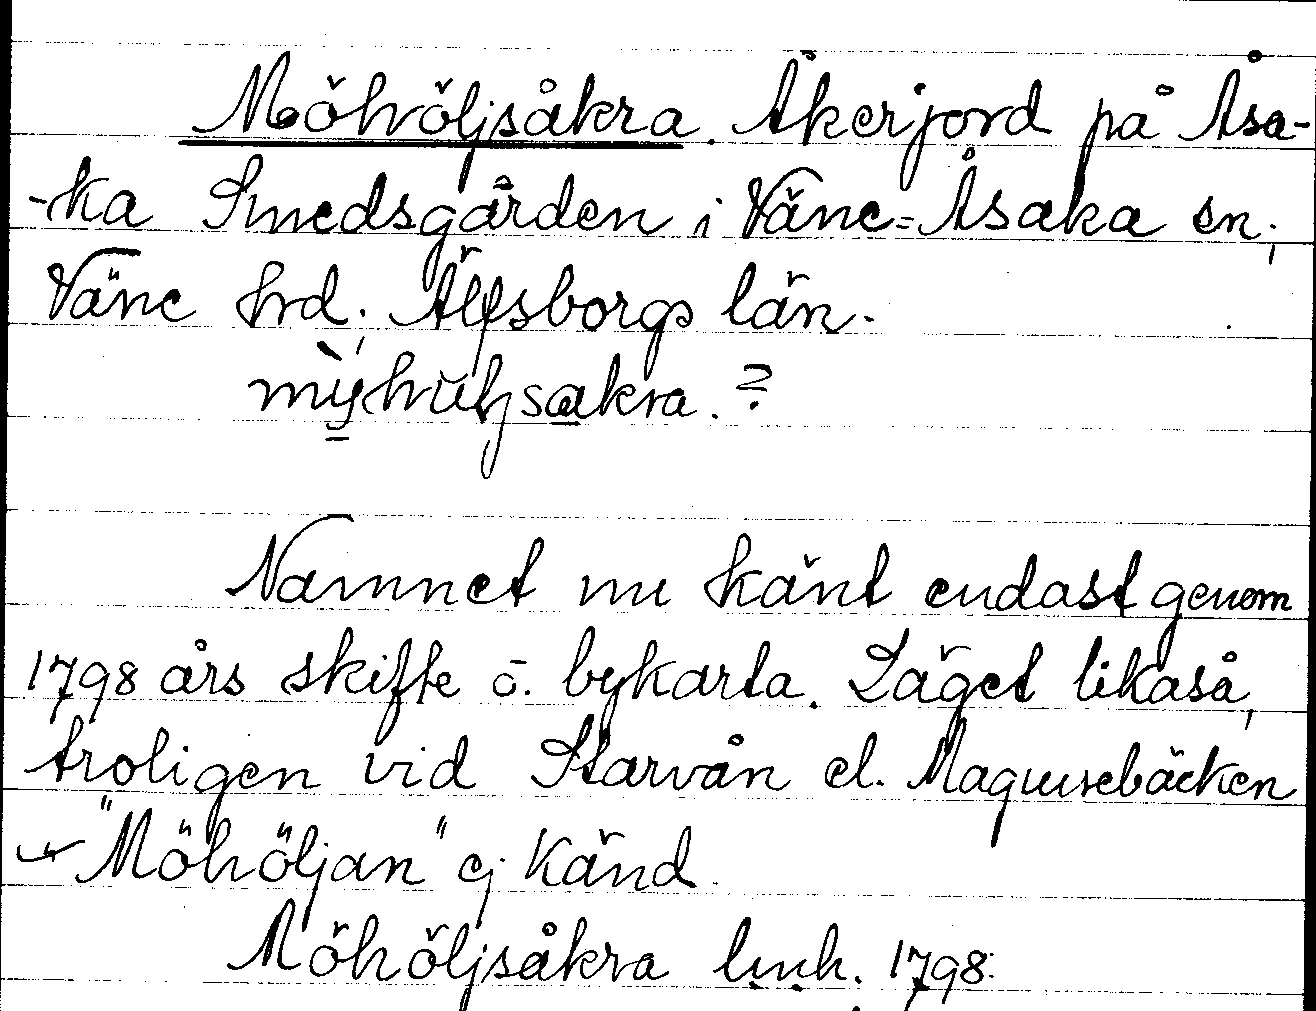 Möhöljsåkra. Åkerjord på Åsa-
-ka Smedsgården i Väne-Åsaka sn,
Väne hrd, Älfsborgs län.
?
Namnet nu känt endast genom
1798 års skifte o. bykarta. Läget likaså,
troligen vid Starvån el.
"Möhöljan" ej känd.
Möhöljsåkra lmh. 1798.